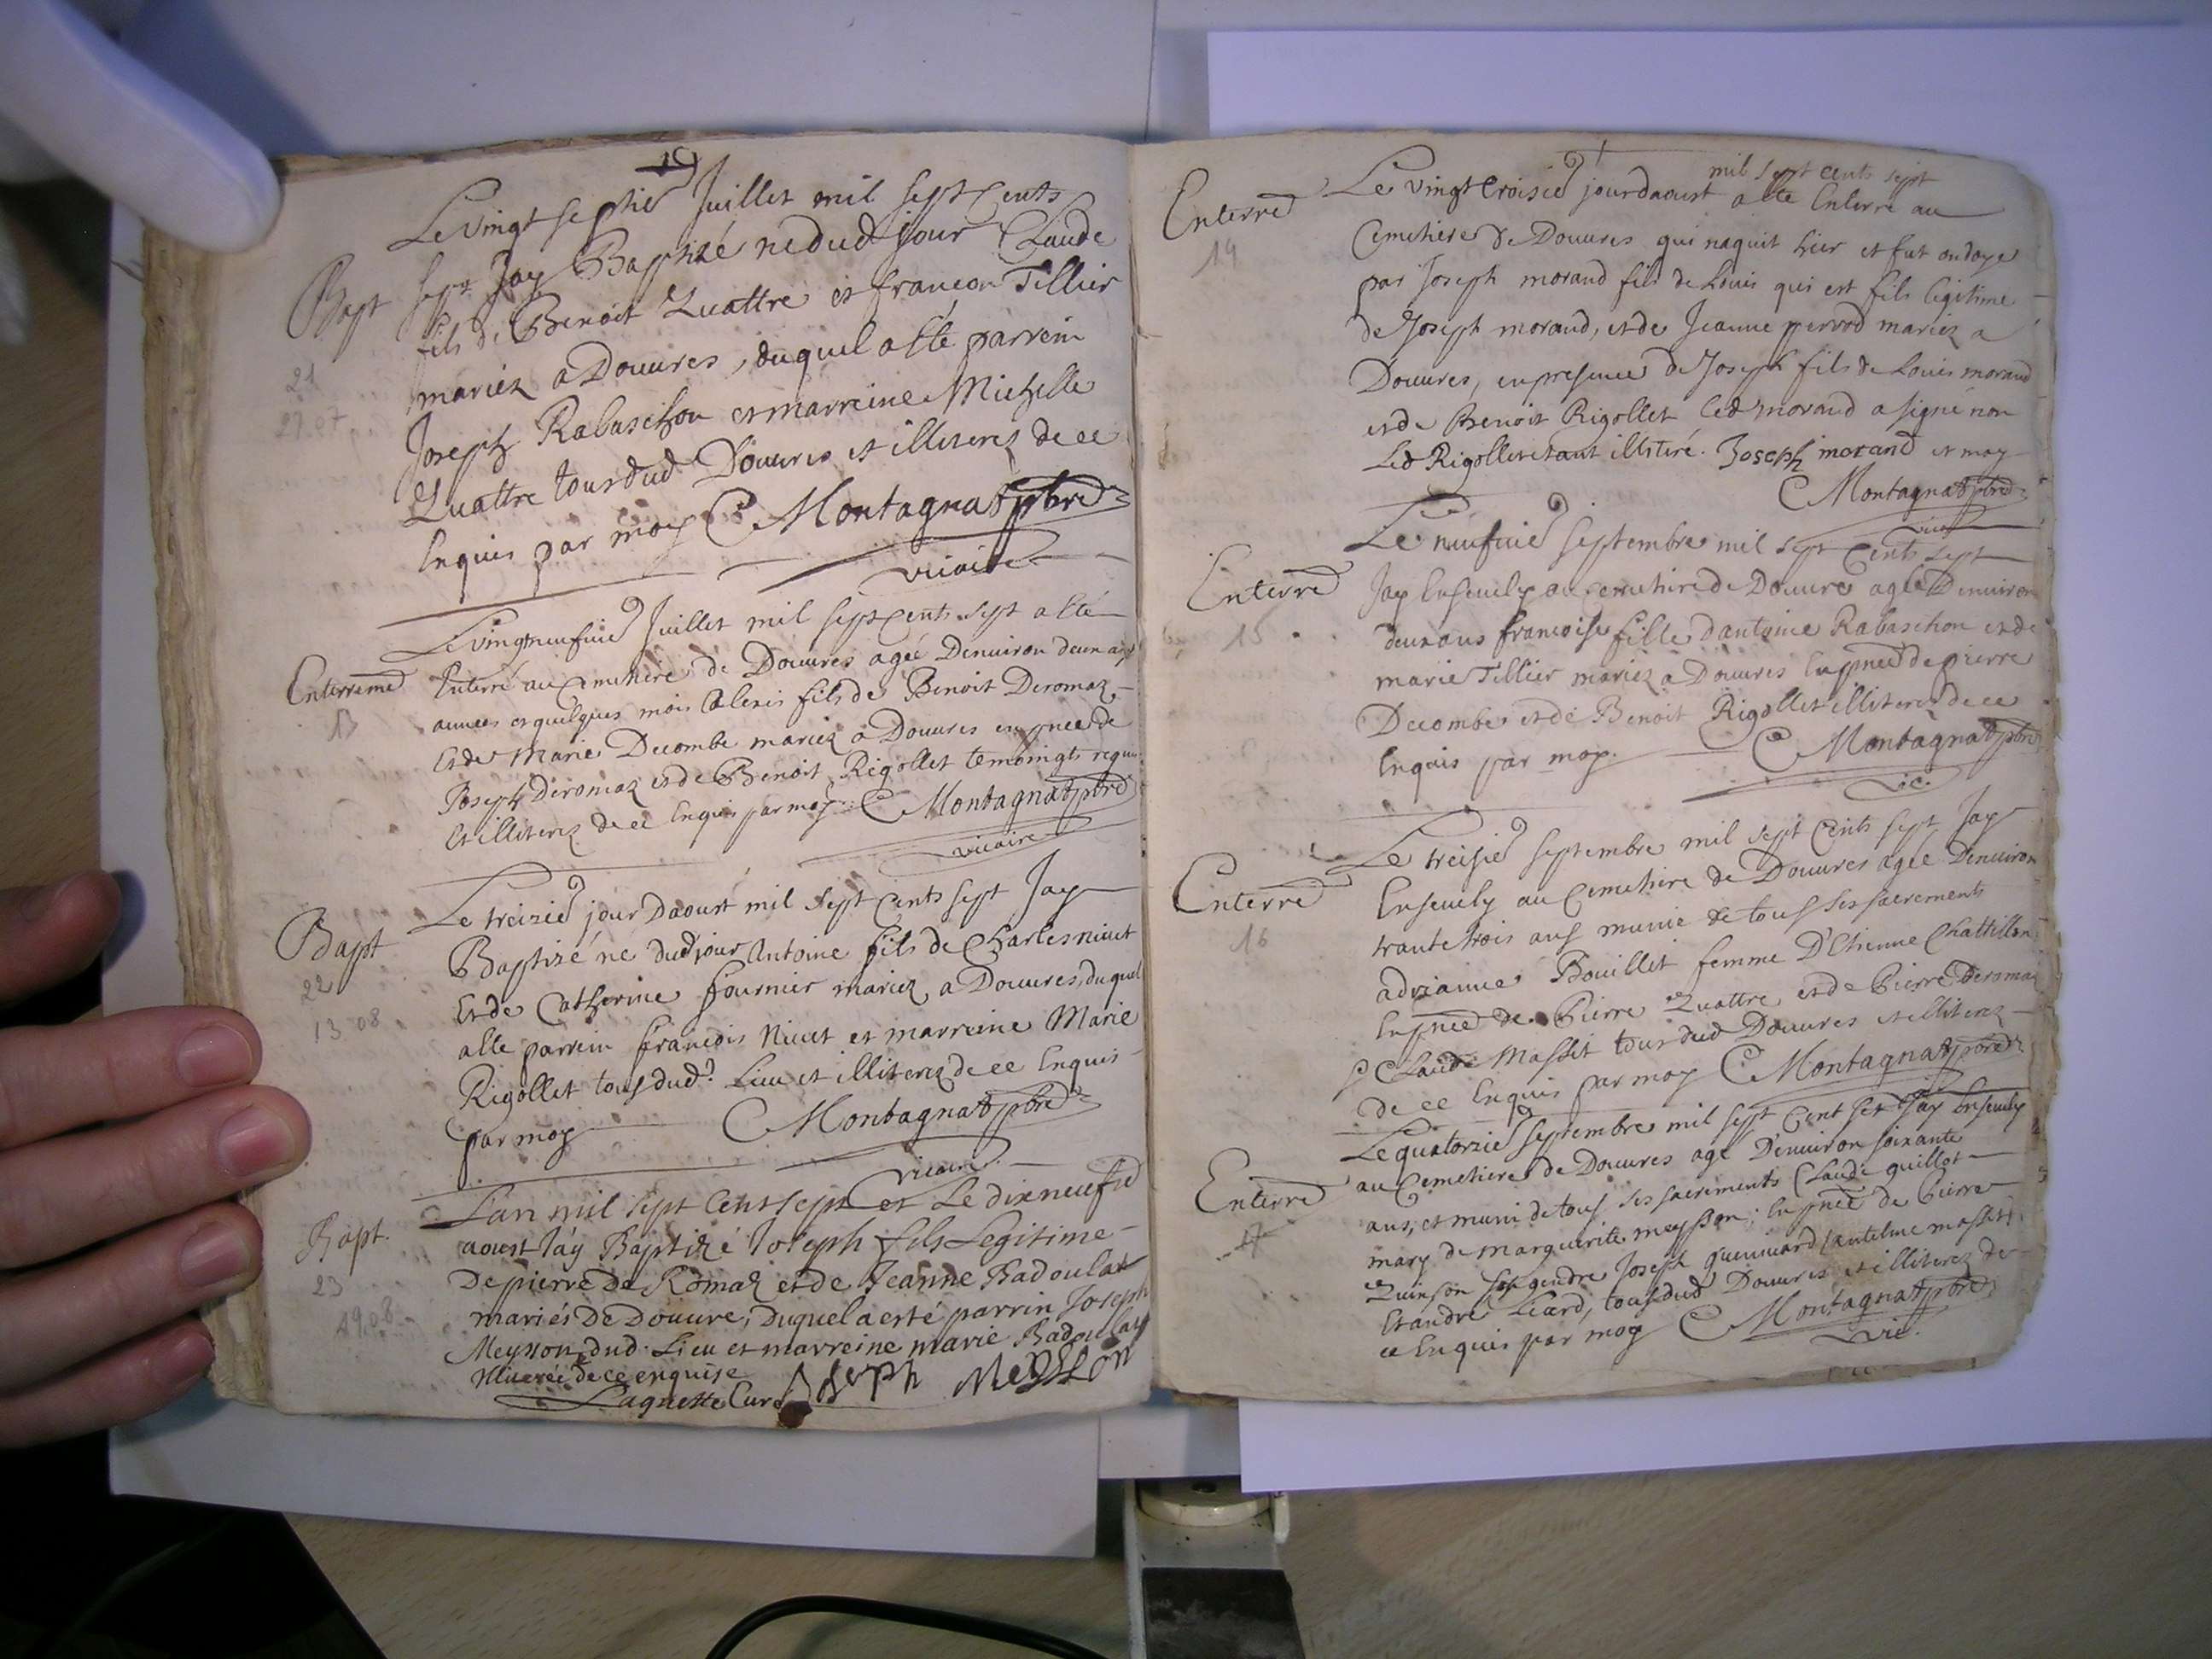 Le vingt septie Juillet mil sept Cents
Bapt
sept Jay Baptizé né dud jour Claude
fils de Benoit Quattre et francon Tillier
21
27.07
mariez a Douures, duquel a esté parrein
Joseph Rabaschon et marreine Michelle
Quattre tous dud Douures et illiterez de ce
Enquis par moy C Montagnat pbre
vicaire
Le vingtneufvie Juillet mil sept Cents sept a esté
Enterreme
13
Enterré au Cemetiere de Douures agée Denuiron deux
années et quelques mois Alexis fils de Benoit Deromaz
Et de Marie Decombe mariez a Douures en pnce de
Joseph Deromaz et de Benoit Rigollet temoingts requis
Et illiterez de ce Enquis par moy C Montagnat pbre
vicaire
Le treizie jour Daoust mil sept Cents sept Jay
Bapt
22
13 08
Baptizé né dud jour Antoine fils de Charles niuet
Et de Catherine fournier mariez a Douures, duquel
a esté parrein francois Niuet et marreine Marie
Rigollet tous dud Lieu et illiterez de ce Enquis
par moy C Montagnat pbre
vicaire
Lan mil sept Cent sept et Le dixneufie
Bapt.
23
19.08
aoust Jay Baptizé Joseph fils Legitime
De pierre De Romaz et de Jeanne Badoulat
mariés De Douure, Duquel a esté parrin Joseph
Meysson dud. Lieu et marreine marie Badoulat
de ce enquise
Lagnette Curé Joseph Meysson
mil sept cents sept
Enterré
14
Le vingt troisie jour daoust a été Enterré au
Cemetiere de Douures qui naquit hier et fut ondoye
par Joseph morand fils de Louis qui est fils legitime
de Joseph morand, et de Jeanne perrod mariez a
Douures, en presence de Joseph fils de Louis morand
et de Benoit Rigollet led morand a signé non
Led Rigollet etant illiteré. Joseph morand et moy
C Montagnat pbre
vicaire
Le neufvie septembre mil sept Cents sept
Enterré
15
Jay Ensevely au Cemetiere de Douures agée Denuiron
deux ans francoise fille dantoine Rabaschon et de
marie Tillier mariez a Douures En pnce de pierre
Decombe et de Benoit Rigollet illiterez de ce
Enquis par moy. C Montagnat pbre
vic.
Le treisie septembre mil sept Cents sept Jay
Enterré
16
Ensevely au Cemetiere de Douures agée Denuiron
trante trois ans munie de tous ses sacrements
adrianne Bouillet femme D'Etienne Chattillon
En pnce de Pierre Quattre et de Pierre Deromaz
Claude Massit tous dud Douures et illiterez
de ce Enquis par moy C Montagnat pbre
Le quatorzie septembre mil sept Cent sept Jay Ensevely
Enterré
17
au Cemetiere de Douures agé Denuiron soixante
ans, et muni de tous ses sacrements Claude guillot
mary de marguerite meysson, En pnce de Pierre
Quinson son gendre Joseph antelme massit
Et andre Liard, tous dud Douures et illiterez de
ce Enquis par moy C Montagnat pbre
vic.